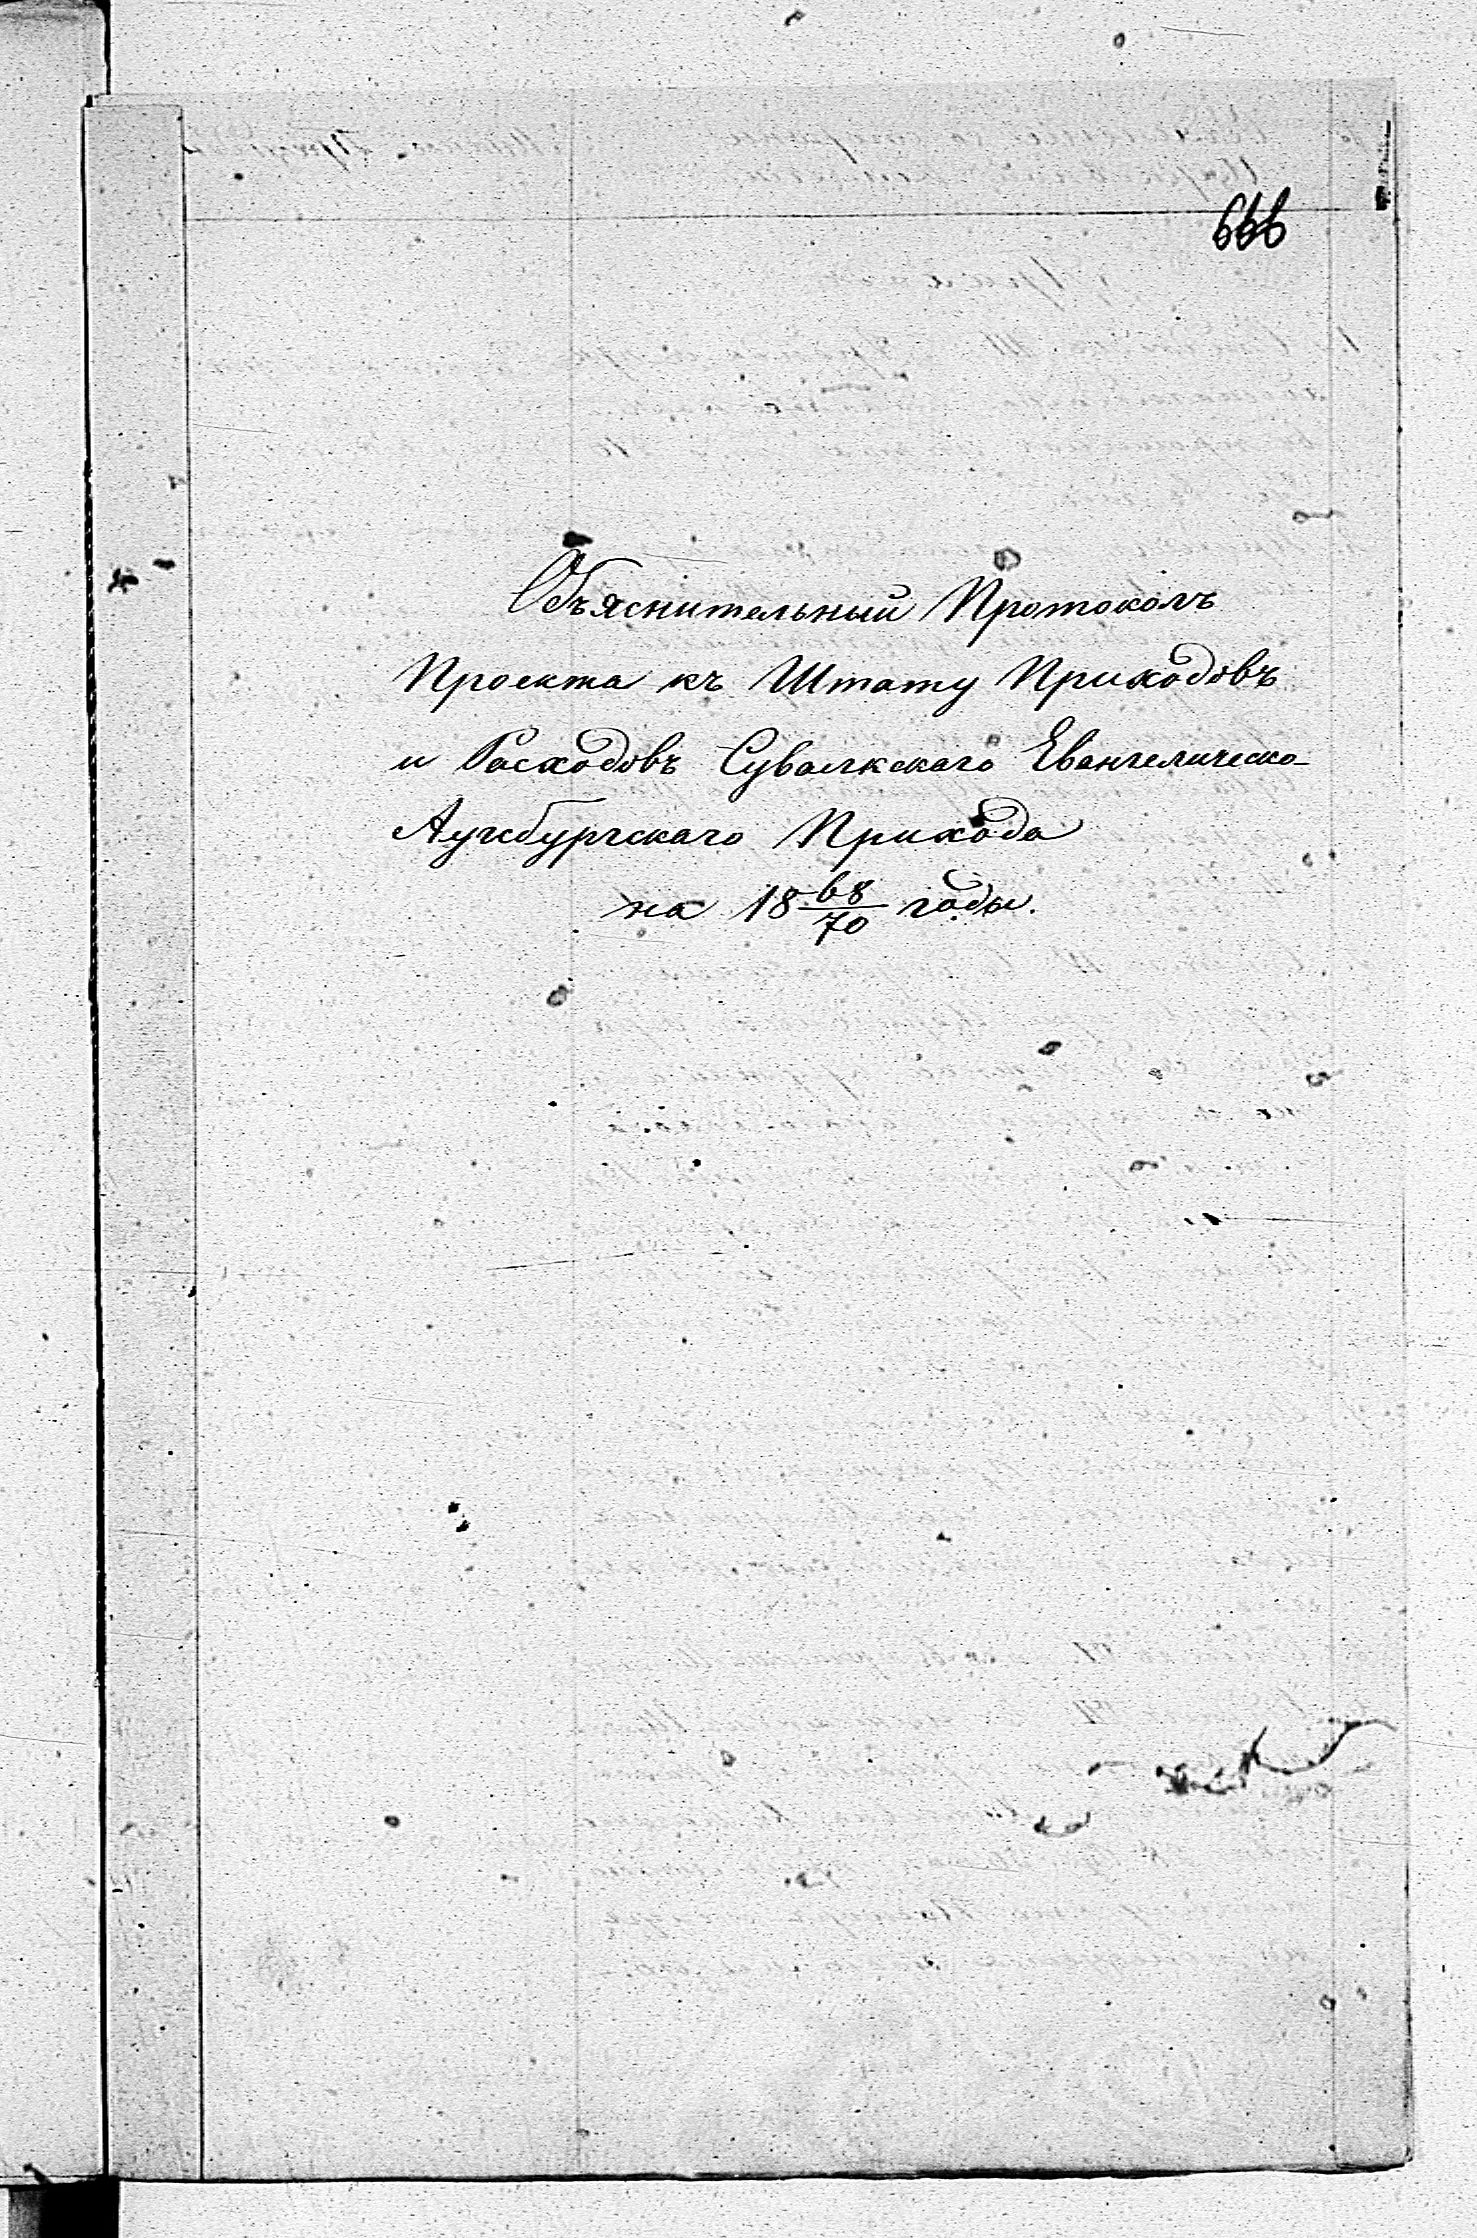 666
Объяснительный Протоколъ
Проекта къ Штату Приходовъ
и Расходовъ Сувалкскаго Евангелическо-
Аугсбургскаго Прихода
на 18 68/70 годы.